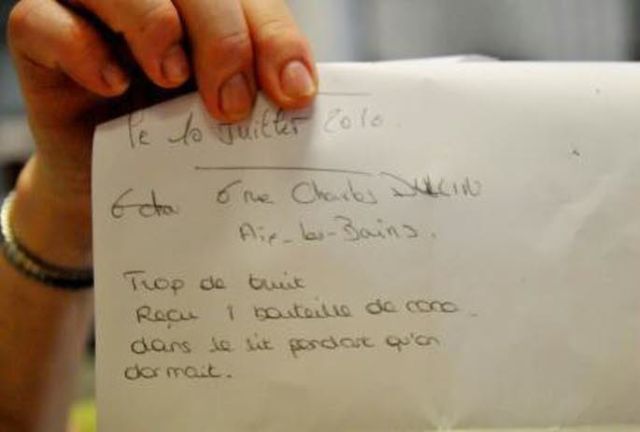 Le 10 Juillet 2010.
6 rue Charles
Aix-les-Bains.
Trop de bruit
Reçu 1 bouteille de coca
dans le lit pendant qu'on
dormait.